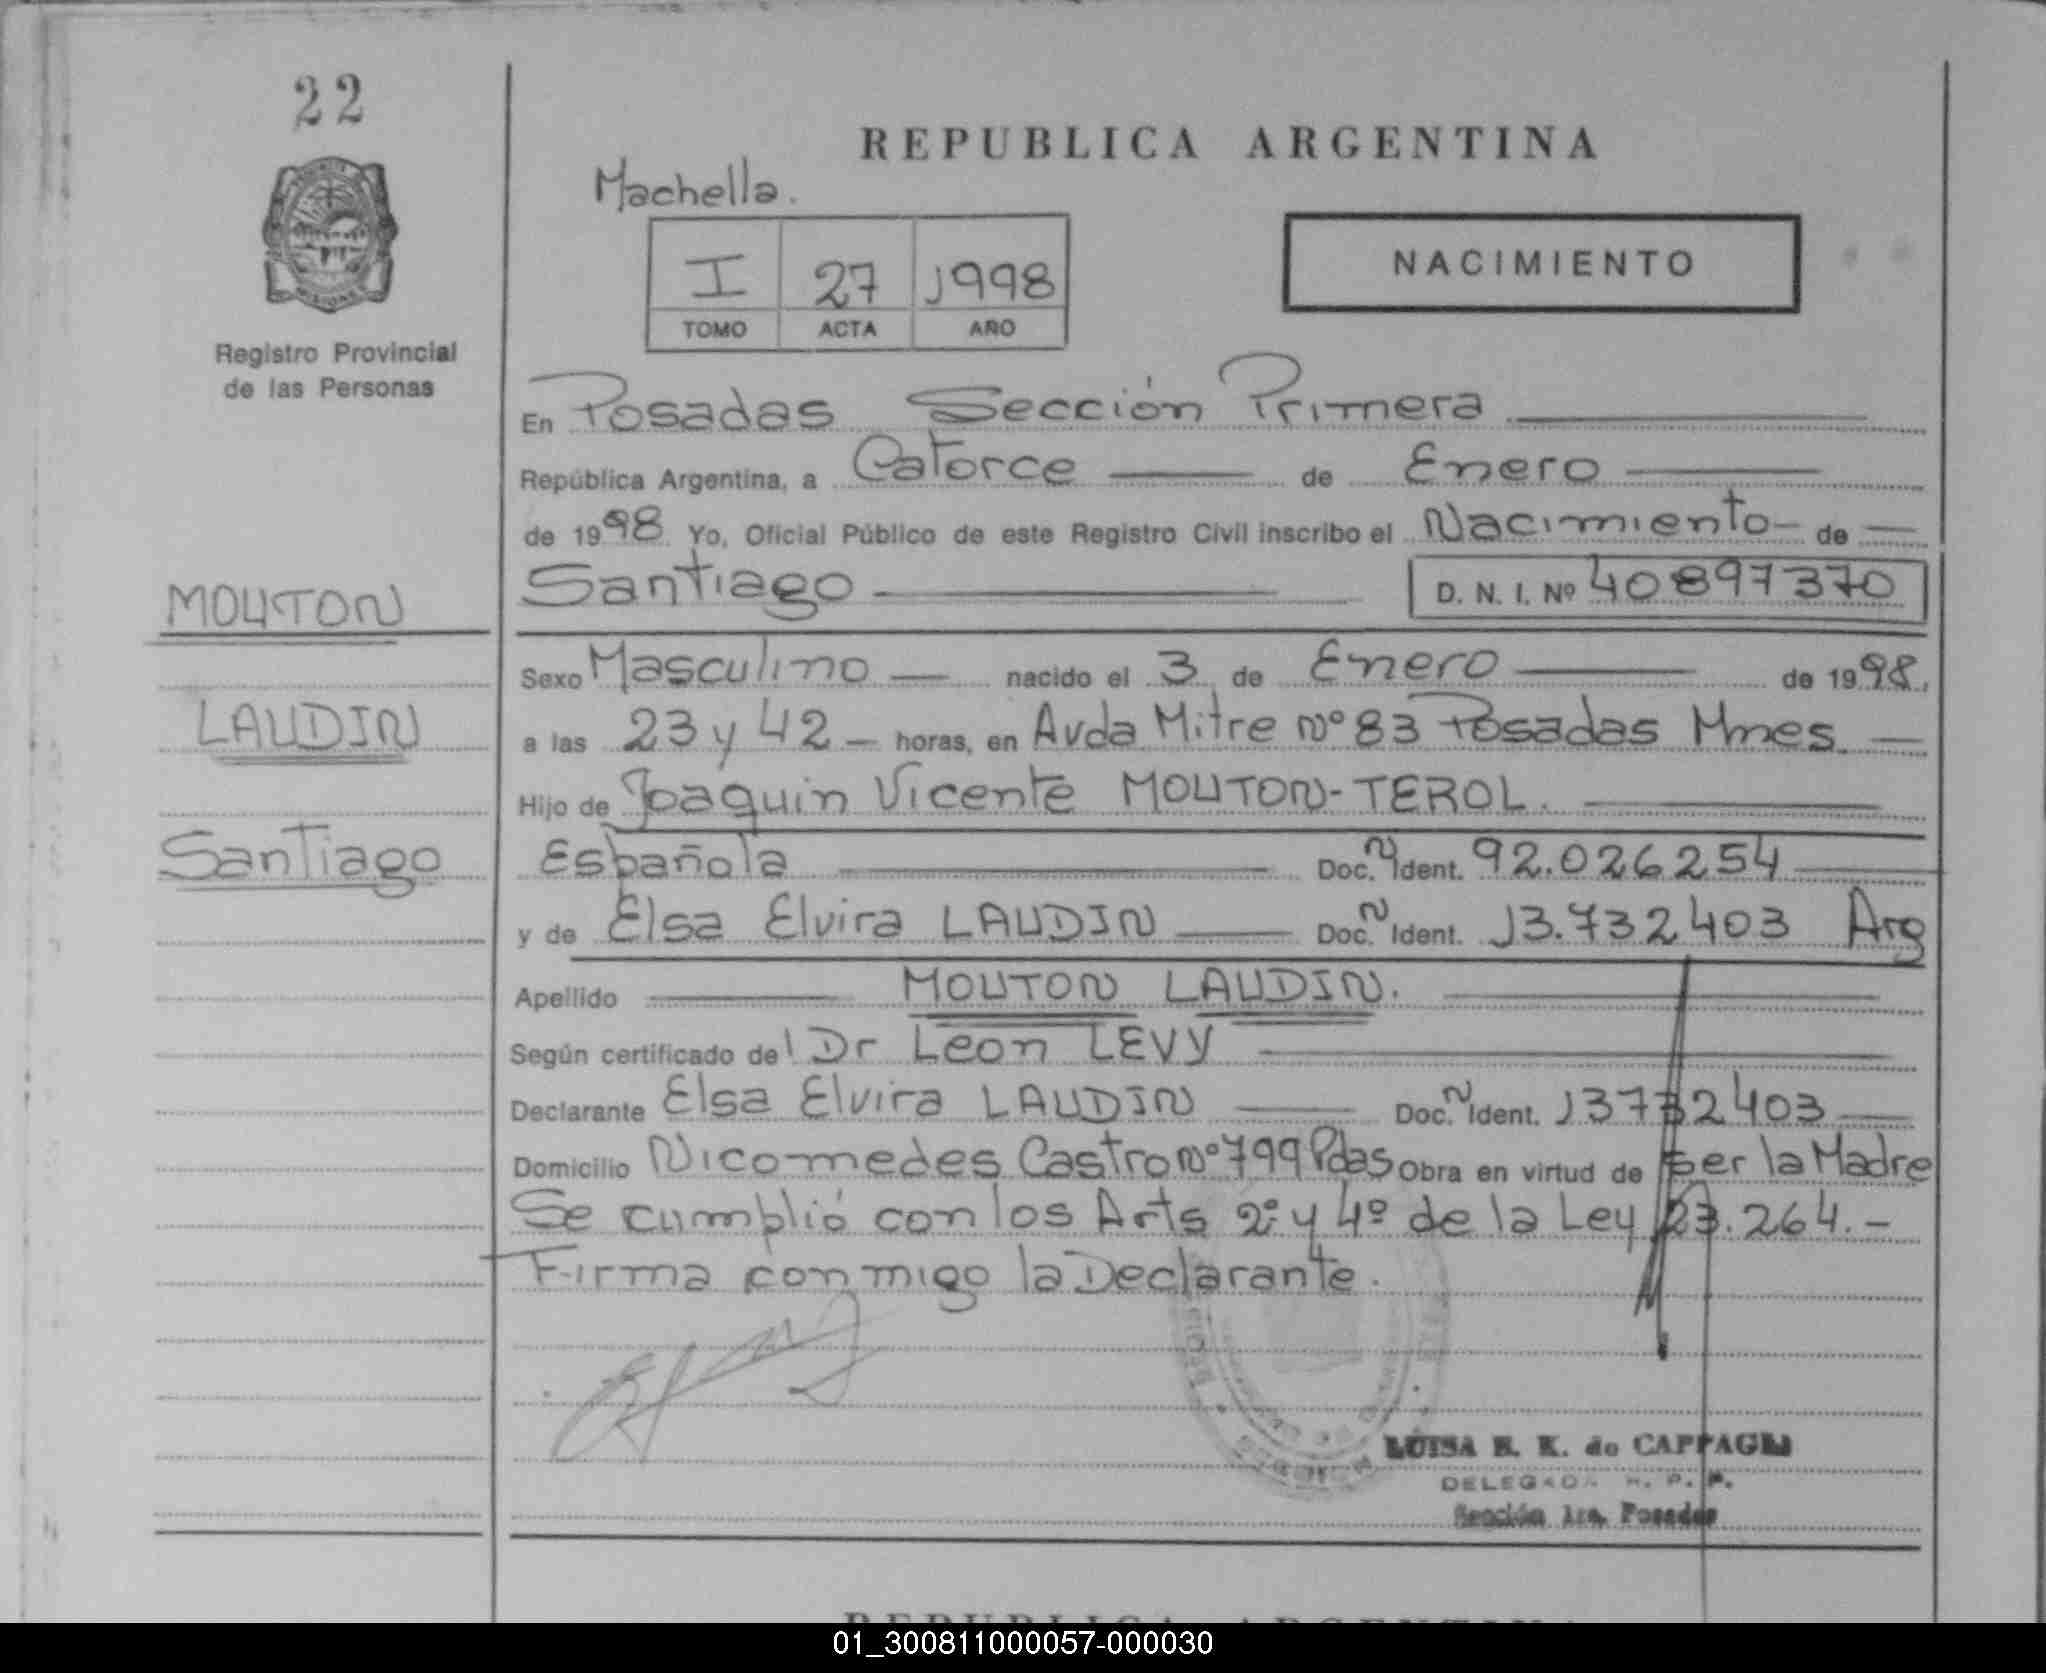 22
REPUBLICA ARGENTINA
Machella.
NACIMIENTO
I 27 1998
TOMO ACTA AÑO
MISIONES
Registro Provincial
de las Personas
En Posadas Sección Primera
República Argentina, a Catorce de Enero
de 1998 Yo, Oficial Público de este Registro Civil inscribo el Nacimiento - de
Santiago D. N. I. Nº 40897370
MOUTON
LAUDIN
Santiago
Sexo Masculino nacido el 3 de Enero de 1998.
a las 23 y 42 - horas, en Avda Mitre Nº 83 Posadas Mnes.
Hijo de Joaquin Vicente MOUTON-TEROL.
Española Doc. N Ident. 92.026254
y de Elsa Elvira LAUDIN Doc. N Ident. 13.732403 Arg
Apellido MOUTON LAUDIN.
Según certificado del Dr Leon LEVY
Declarante Elsa Elvira LAUDIN Doc. N Ident. 13732403
Domicilio Nicomedes Castro Nº 799 Pdas Obra en virtud de ser la Madre
Se cumplió con los Arts 2º y 4º de la Ley 23.264.-
Firma conmigo la Declarante.
LUISA K. de CAPPAGLI
DELEGADA R. P. P.
Sección 1ra. Posadas
REPUBLICA ARGENTINA
01_300811000057-000030